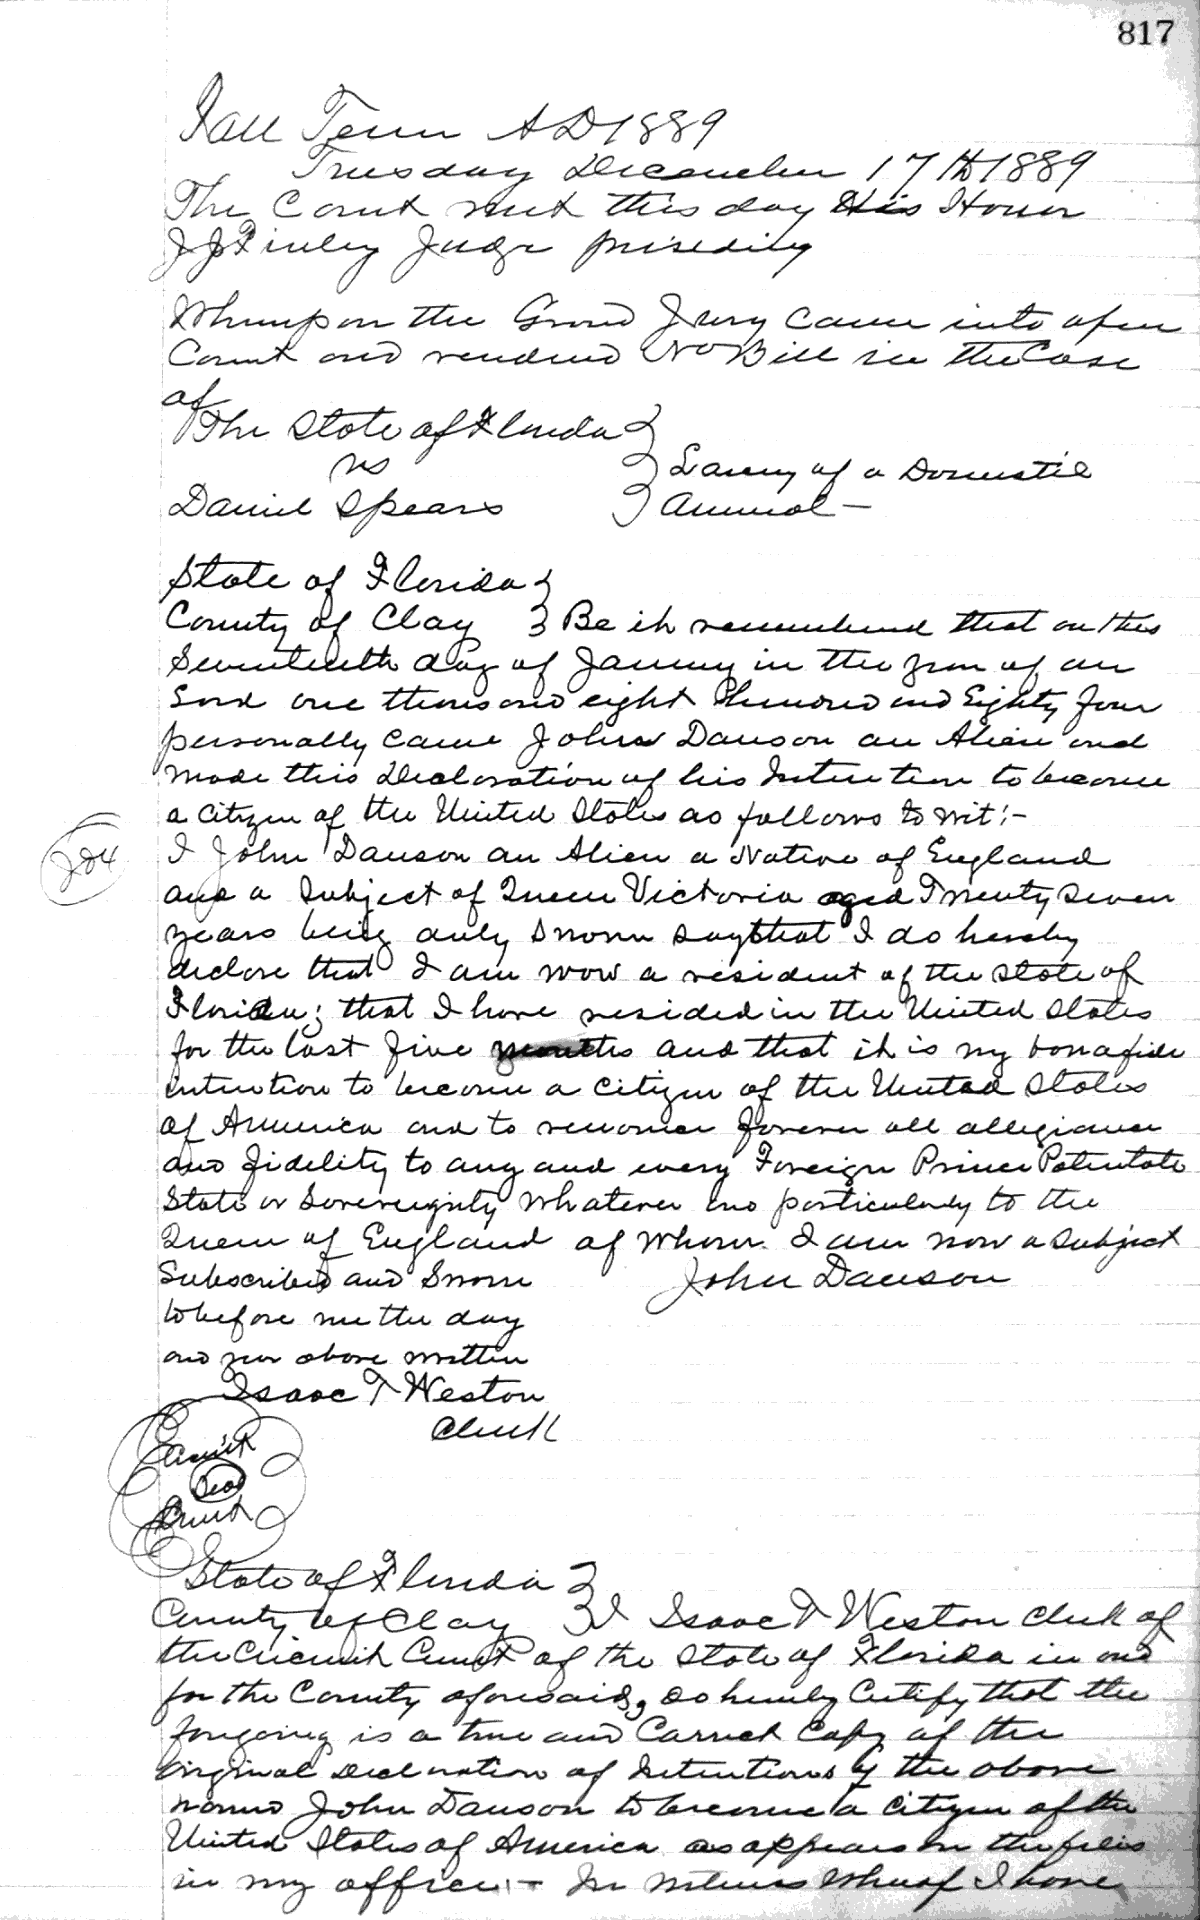 817
Fall Term AD 1889
Tuesday December 17th 1889
The Court met this day His Honor
J J Finley Judge presiding
Whereupon the Grand Jury came into open
Court and rendered No Bill in the Case
of
The State of Florida
vs
Larceny of a Domestic
Daniel Spears
Animal —
State of Florida
County of Clay Be it remembered that on this
Seventeenth day of January in the year of our
Lord one thousand eight hundred and Eighty four
personally came John Dawson an Alien and
made this Declaration of his Intention to become
a Citizen of the United States as follows to wit:-
I John Dawson an Alien a Native of England
and a Subject of Queen Victoria aged Twenty Seven
years being duly Sworn say that I do hereby
declare that I am now a resident of the State of
Florida; that I have resided in the United States
for the last five months and that it is my bonafide
intention to become a Citizen of the United States
of America and to renounce forever all allegiance
and fidelity to any and every Foreign Prince Potentate
State or Sovereignty Whatever and particularly to the
Queen of England of Whom I am now a Subject
Subscribed and Sworn John Dawson
to before me the day
and year above written
Isaac T Weston
Clerk
Circuit
Seal
Court
State of Florida
County of Clay I Isaac T Weston Clerk of
the Circuit Court of the State of Florida in and
for the County aforesaid, do hereby Certify that the
foregoing is a true and Correct Copy of the
original Declaration of Intentions of the above
named John Dawson to become a Citizen of the
United States of America as appears on the files
in my office:- In Witness Whereof I have